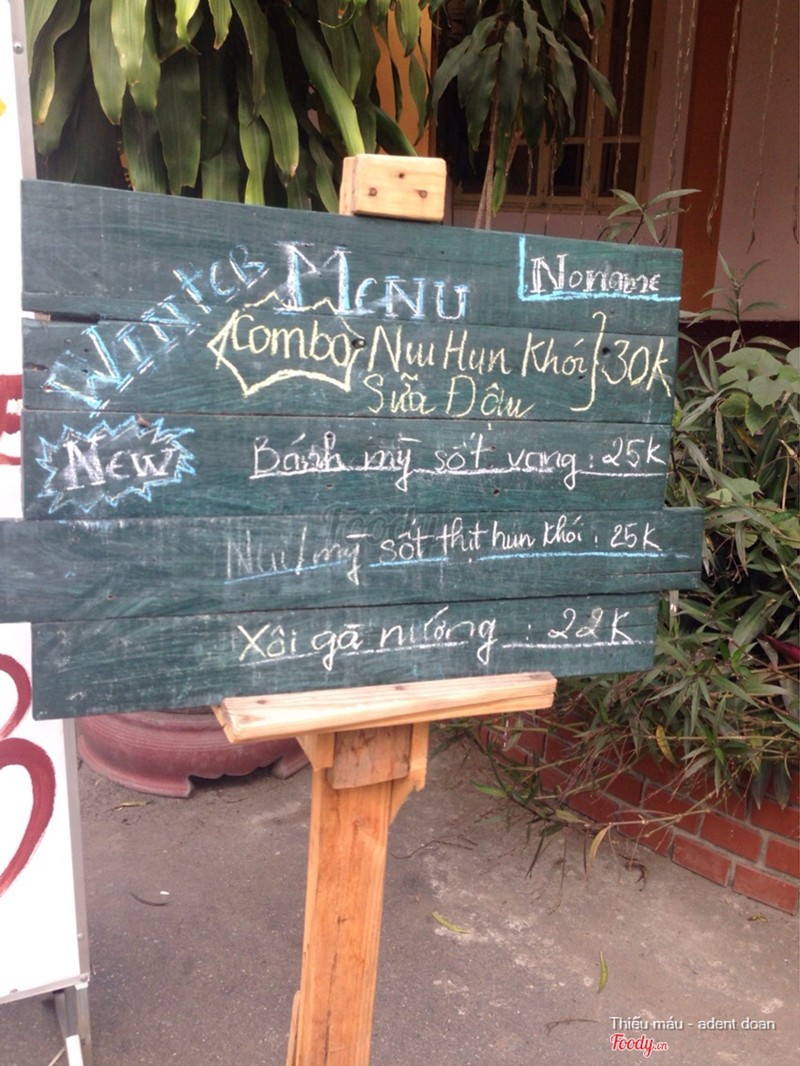 WINTER MENU
Noname
Combo Nui Hun Khói } 30K
Sữa Đậu
New
Bánh mỳ sốt vang : 25K
Nui/mỳ sốt thịt hun khói : 25K
Xôi gà nướng : 22K
Thiếu máu - adent doan
Foody.vn